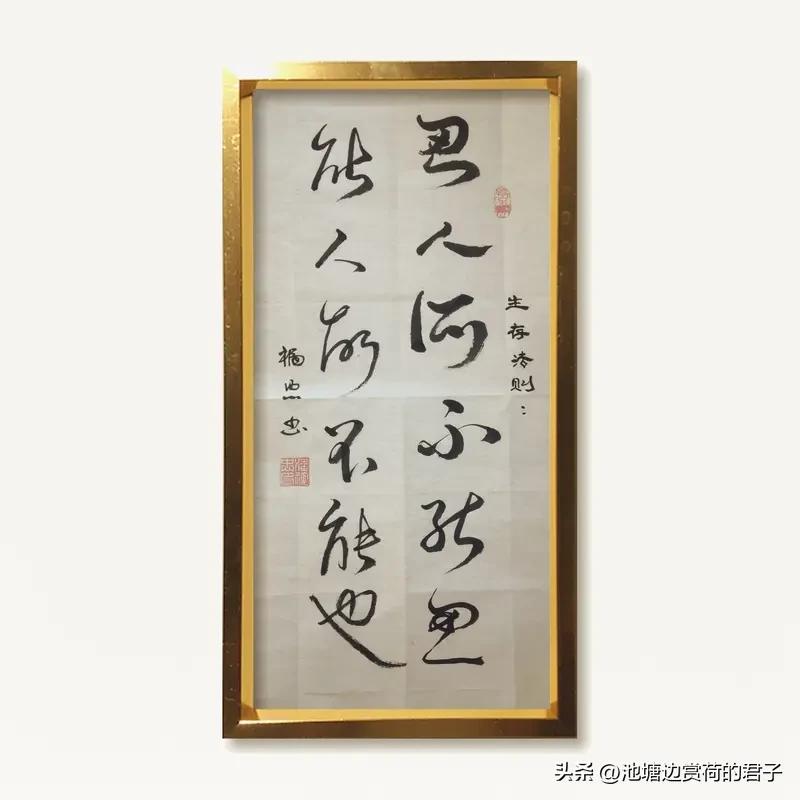 生存法则：
忍人所不能忍
能人所不能也
福忠书
头条 @池塘边赏荷的君子